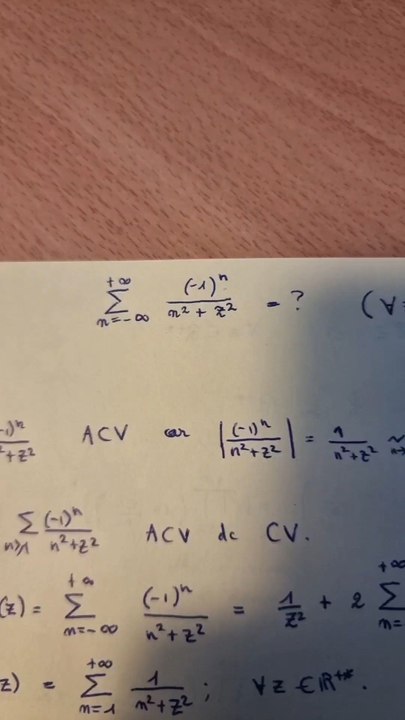 ∑_{n=-∞}^{+∞} (-1)^n / (n² + z²) = ? (∀
(-1)^n / (n²+z²) ACV car |(-1)^n / (n²+z²)| = 1 / (n²+z²) ~
∑_{n≥1} (-1)^n / (n²+z²) ACV dc CV.
(z) = ∑_{n=-∞}^{+∞} (-1)^n / (n²+z²) = 1/z² + 2 ∑_{n=}^{+∞}
z) = ∑_{n=1}^{+∞} 1 / (n²+z²) ; ∀z ∈ ℝ^{+*}.